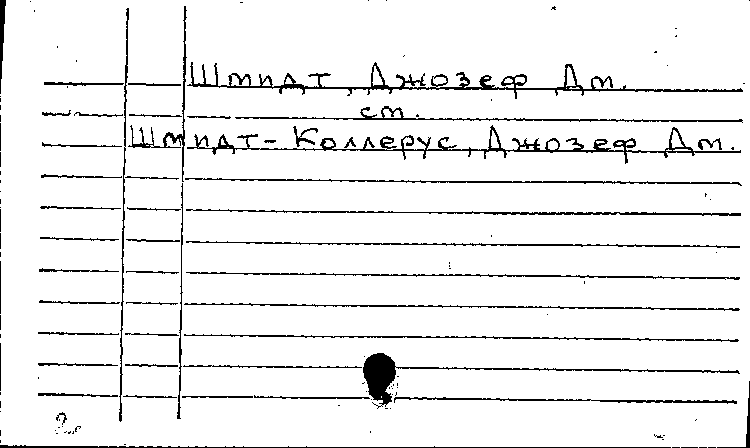 Шмидт, Джозеф Дж.
см.
Шмидт-Коллерус, Джозеф Дж.